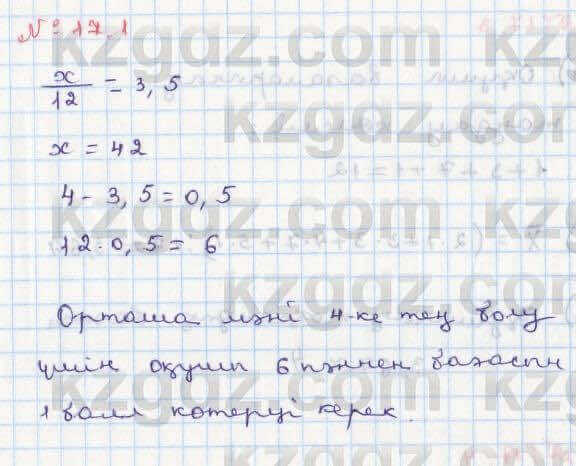 № 17.1
x/12 = 3,5
x = 42
4 - 3,5 = 0,5
12 · 0,5 = 6
Орташа мәні 4-ке тең болу
үшін оқушы 6 пәннен бағасын
1 балл көтеруі керек.
kzgdz.com
kzgdz.com
kzgdz.com
kzgdz.com
kzgdz.com
kzgdz.com